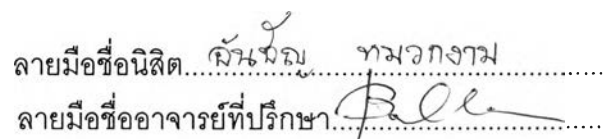 ลายมือชื่อนิสิต หมวกงาม
ลายมือชื่ออาจารย์ที่ปรึกษา